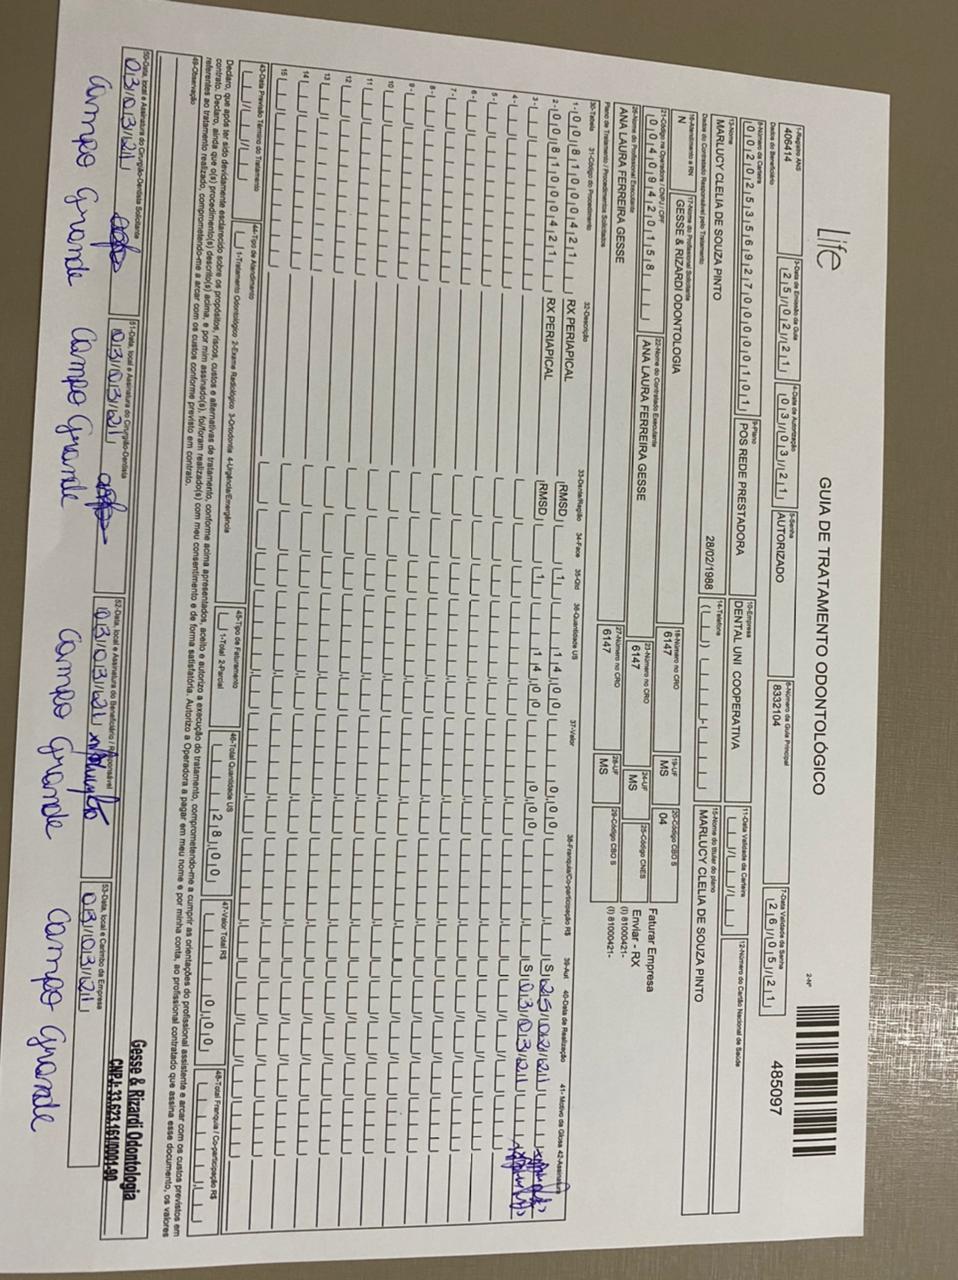 Life
GUIA DE TRATAMENTO ODONTOLÓGICO
2-Nº
485097
1-Registro ANS
406414
3-Data de Emissão da Guia
25/02/21
4-Data de Autorização
03/03/21
5-Senha
AUTORIZADO
6-Número da Guia Principal
8332104
7-Data Validade da Senha
26/05/21
Dados do Beneficiário
8-Número da Carteira
00202535692700000101
9-Plano
POS REDE PRESTADORA
10-Empresa
DENTAL UNI COOPERATIVA
11-Data Validade da Carteira
12-Número do Cartão Nacional de Saúde
13-Nome
MARLUCY CLELIA DE SOUZA PINTO
28/02/1988
14-Telefone
15-Nome do titular do plano
MARLUCY CLELIA DE SOUZA PINTO
Dados do Contratado Responsável pelo Tratamento
16-Atendimento a RN
N
17-Nome do Profissional Solicitante
GESSE & RIZARDI ODONTOLOGIA
18-Número no CRO
6147
19-UF
MS
20-Código CBO S
04
21-Código na Operadora / CNPJ / CPF
00409420158
22-Nome do Contratado Executante
ANA LAURA FERREIRA GESSE
23-Número no CRO
6147
24-UF
MS
25-Código CNES
Faturar Empresa
Enviar - RX
(I) 81000421-
(I) 81000421-
26-Nome do Profissional Executante
ANA LAURA FERREIRA GESSE
27-Número no CRO
6147
28-UF
MS
29-Código CBO S
Plano de Tratamento / Procedimentos Solicitados
30-Tabela 31-Código do Procedimento 32-Descrição 33-Dente/Região 34-Face 35-Qtd 36-Quantidade US 37-Valor 38-Franquia/Co-participação R$ 39-Aut 40-Data de Realização 41-Motivo da Glosa 42-Assinatura
1- 00 81000421 RX PERIAPICAL RMSD 1 14,00 0,00 S 25/02/21
2- 00 81000421 RX PERIAPICAL RMSD 1 14,00 0,00 S 03/03/21
3-
4-
5-
6-
7-
8-
9-
10
11
12
13
14
15
43-Data Previsão Término do Tratamento
44-Tipo de Atendimento
1-Tratamento Odontológico 2-Exame Radiológico 3-Ortodontia 4-Urgência/Emergência
45-Tipo de Faturamento
1-Total 2-Parcial
46-Total Quantidade US
28,00
47-Valor Total R$
0,00
48-Total Franquia / Co-participação R$
Declaro, que após ter sido devidamente esclarecido sobre os propósitos, riscos, custos e alternativas de tratamento, conforme acima apresentados, aceito e autorizo a execução do tratamento, comprometendo-me a cumprir as orientações do profissional assistente e arcar com os custos previstos em
contrato. Declaro, ainda que o(s) procedimento(s) descrito(s) acima, e por mim assinado(s), foi/foram realizado(s) com meu consentimento e de forma satisfatória. Autorizo a Operadora a pagar em meu nome e por minha conta, ao profissional contratado que assina esse documento, os valores
referentes ao tratamento realizado, comprometendo-me a arcar com os custos conforme previsto em contrato.
49-Observação
50-Data, local e Assinatura do Cirurgião-Dentista Solicitante
03/03/21
Campo Grande
51-Data, local e Assinatura do Cirurgião-Dentista
03/03/21
Campo Grande
52-Data, local e Assinatura do Beneficiário / Responsável
03/03/21
Campo Grande
53-Data, local e Carimbo da Empresa
03/03/21
Campo Grande
Gesse & Rizardi Odontologia
CNPJ: 33.623.161/0001-90